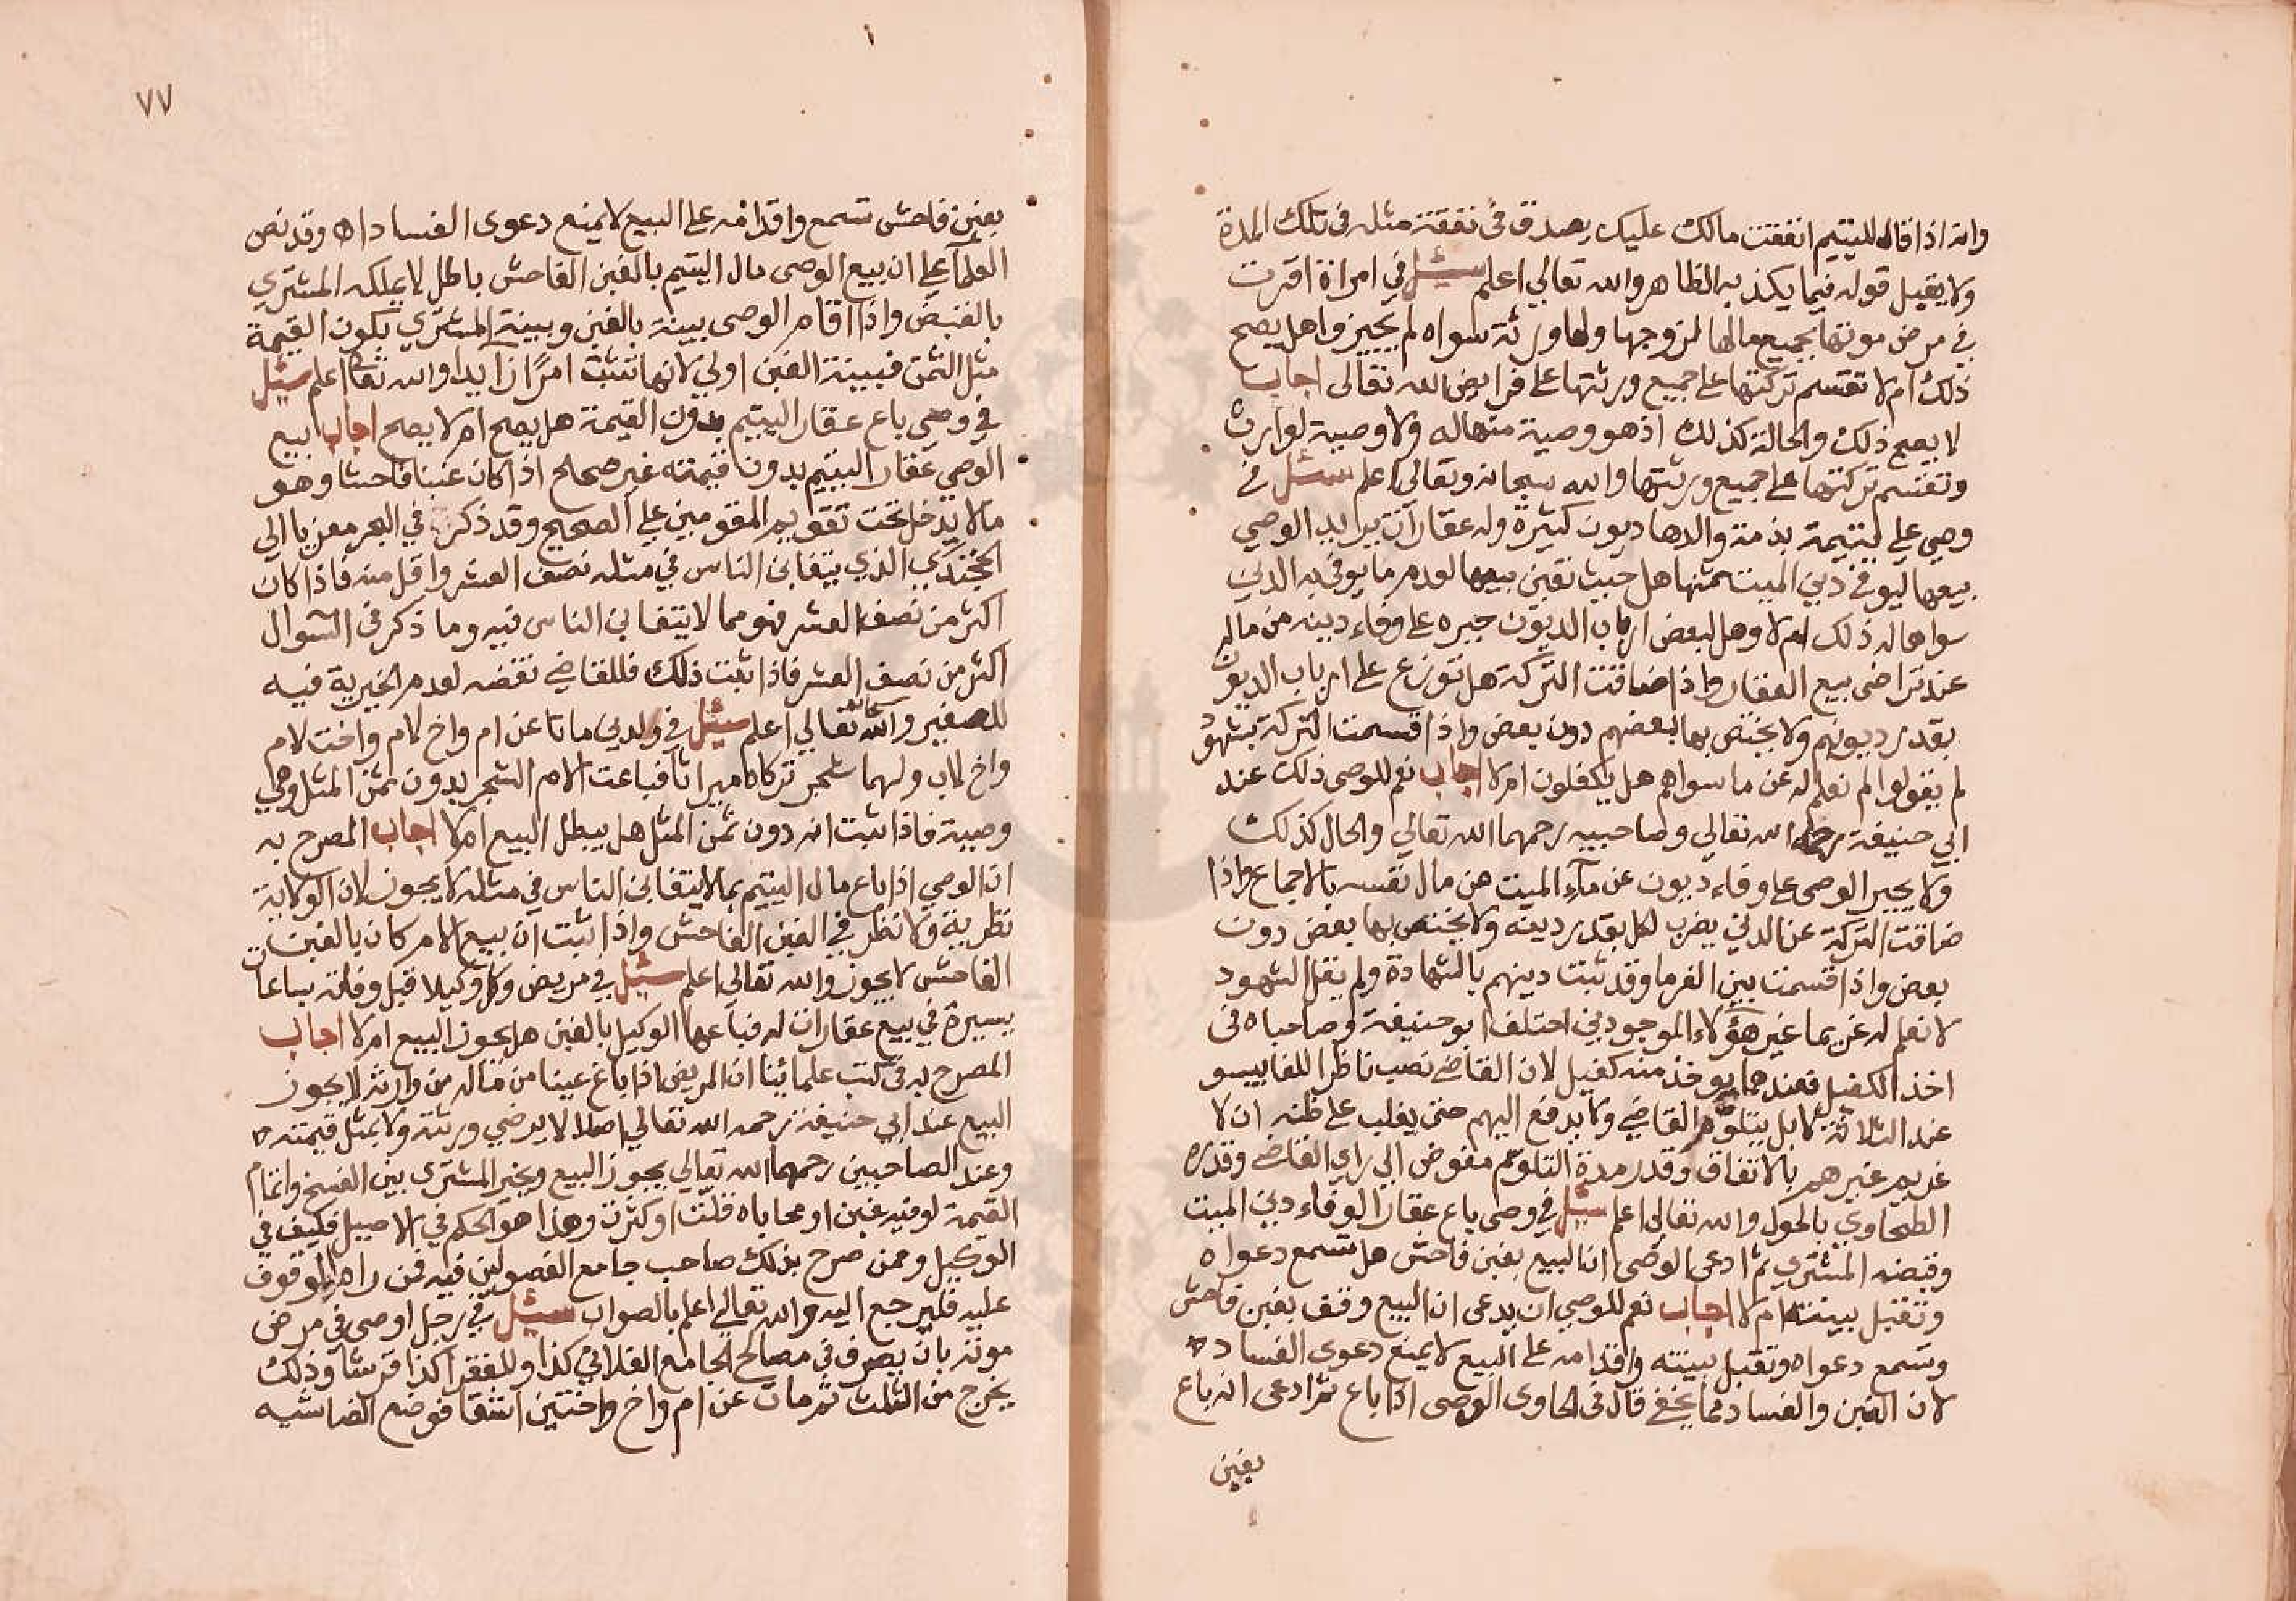 وانه اذا قال لليتيم انفقت مالك عليك يصدق في نفقة مثله في تلك المدة
ولا يقبل قوله فيما يكذبه الظاهر والله تعالي اعلم سئل في امراة اقرت
في مرض موتها بجميع مالها لزوجها ولها ورثة سواه لم يجيزوا هل يصح
ذلك ام لا تقسم تركتها علي جميع ورثتها علي فرايض الله تعالى اجاب
لا يصح ذلك والحالة كذلك اذ هو وصية منها له ولا وصية لوارث
وتقسم تركتها علي جميع ورثتها والله سبحانه وتعالي اعلم سئل في
وصي علي يتيمة بذمة والدها ديون كثيرة وله عقارات يريد الوصي
بيعها ليوفي دين الميت بثمنها هل حيث تعين بيعها لعدم ما يوفي به الدين
سواها له ذلك ام لا وهل لبعض ارباب الديون جبره علي وفاء دينه من ماله
عند تراخي بيع العقار واذا ضاقت التركة هل توزع على ارباب الديون
بقدر ديونهم ولا يختص بها بعضهم دون بعض واذا قسمت التركة بشهود
لم يقولوا لم نعلم له عن ما سواهم هل يكفلون ام لا اجاب نعم للوصي ذلك عند
ابي حنيفة رحمه الله تعالي وصاحبيه رحمهما الله تعالي والحال كذلك
ولا يجبر الوصي على وفاء ديون عن الميت من مال نفسه بالاجماع واذا
ضاقت التركة عن الدين يضرب لكل بقدر دينه ولا يختص بها بعض دون
بعض واذا قسمت بين الغرما وقد ثبت دينهم بالشهادة ولم يقل الشهود
لا نعلم له غريما غير هؤلاء الموجودين اختلف ابو حنيفة وصاحباه في
اخذ الكفيل فعندهما يوخذ منه كفيل لان القاضي نصب ناظرا للغايب و
عند الثلاثة لا بل يتلوم القاضي ولا يدفع اليهم حتى يغلب على ظنه ان لا
غريم غيرهم بالاتفاق وقدر مدة التلوم مفوض الي راي القاضي وقدره
الطحاوي بالحول والله تعالي اعلم سئل في وصي باع عقارا لوفاء دين الميت
وقبضه المشتري ثم ادعى الوصي ان البيع بغبن فاحش هل تسمع دعواه
وتقبل بينته ام لا اجاب نعم للوصي ان يدعى ان البيع وقف بغبن فاحش
وتسمع دعواه وتقبل بينته واقدامه على البيع لا يمنع دعوى الفساد
لان الغبن والفساد مما يخفي قال في الحاوى الوصى اذا باع ثم ادعى انه باع
بغبن
٧٧
بغبن فاحش تسمع واقدامه علي البيع لا يمنع دعوى الفساد اه وقد نص
العلما علي ان بيع الوصى مال اليتيم بالغبن الفاحش باطل لا يملكه المشتري
بالقبض واذا اقام الوصى بينة بالغبن وبينة المشتري بكون القيمة
مثل الثمن فبينة الغبن اولي لانها تثبت امرا زايدا والله تعالى اعلم سئل
في وصي باع عقار اليتيم بدون القيمة هل يصح ام لا يصح اجاب بيع
الوصي عقار اليتيم بدون قيمته غير صحيح اذا كان غبنا فاحشا وهو
ما لا يدخل تحت تقويم المقومين علي الصحيح وقد ذكر في البحر معزيا الي
الخجندي الذي يتغابن الناس في مثله نصف العشر واقل منه فاذا كان
اكثر من نصف العشر فهو مما لا يتغابن الناس فيه وما ذكر في السوال
اكثر من نصف العشر فاذا ثبت ذلك فللقاضي نقضه لعدم الخيرية فيه
للصغير والله سبحانه تعالي اعلم سئل في ولدين ماتا عن ام واخ لام واخت لام
واخ لاب ولهما شجر تركاه ميراثا فباعت الام الشجر بدون ثمن المثل وهي
وصية فاذا ثبت انه دون ثمن المثل هل يبطل البيع ام لا اجاب المصرح به
ان الوصي اذا باع مال اليتيم بما لا يتغابن الناس في مثله لا يجوز لان الولاية
نظرية ولا نظر في الغبن الفاحش واذا ثبت ان بيع الام كان بالغبن
الفاحش لا يجوز والله تعالي اعلم سئل في مريض وكل وكيلا قبل وفاته بساعات
يسيرة في بيع عقارات له فباعها الوكيل بالغبن هل يجوز البيع ام لا اجاب
المصرح به في كتب علمائنا ان المريض اذا باع عينا من ماله من وارثه لا يجوز
البيع عند ابي حنيفة رحمه الله تعالي اصلا لا يرضي ورثته ولا بمثل قيمته
وعند الصاحبين رحمهما الله تعالي يجوز البيع ويخير المشترى بين الفسخ واتمام
القيمة لو فيه غبن او محاباه قلت او كثرت وهذا هو الحكم في الاصيل فكيف في
الوكيل وممن صرح بذلك صاحب جامع الفصولين فيه فمن رام الوقوف
عليه فليرجع اليه والله تعالي اعلم بالصواب سئل في رجل اوصى في مرض
موته بان يصرف في مصالح الجامع الفلاني كذا وللفقرا كذا قرشا وذلك
يخرج من الثلث ثم مات عن ام واخ واختين اشقا فوضع